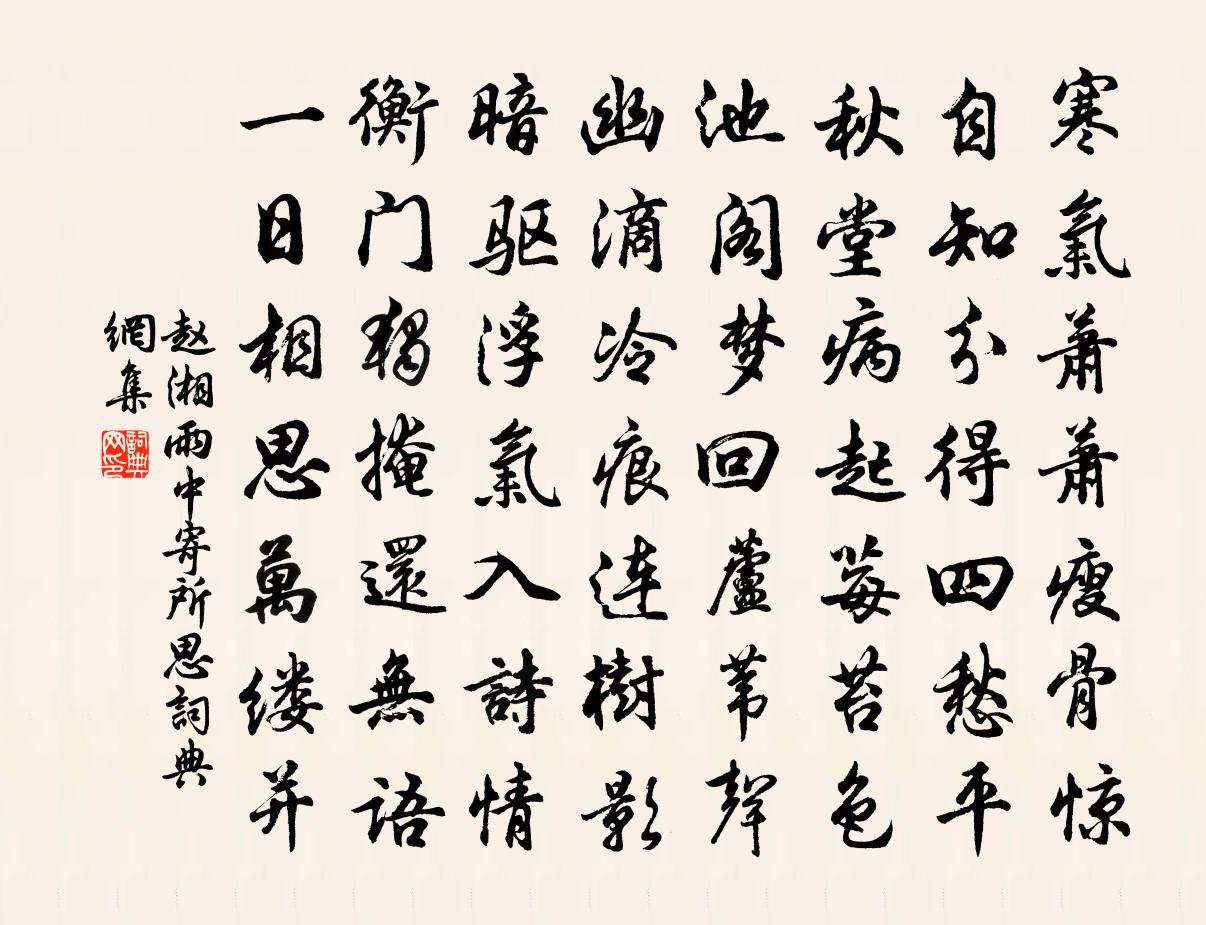 寒氣蕭蕭瘦骨惊
自知分得四愁平
秋堂病起莓苔色
池阁梦回蘆苇聲
幽滴冷痕连樹影
暗驱浮氣入詩情
衡门独掩還無語
一日相思萬缕并
赵湘雨中寄所思詞典
網集
詞典网印